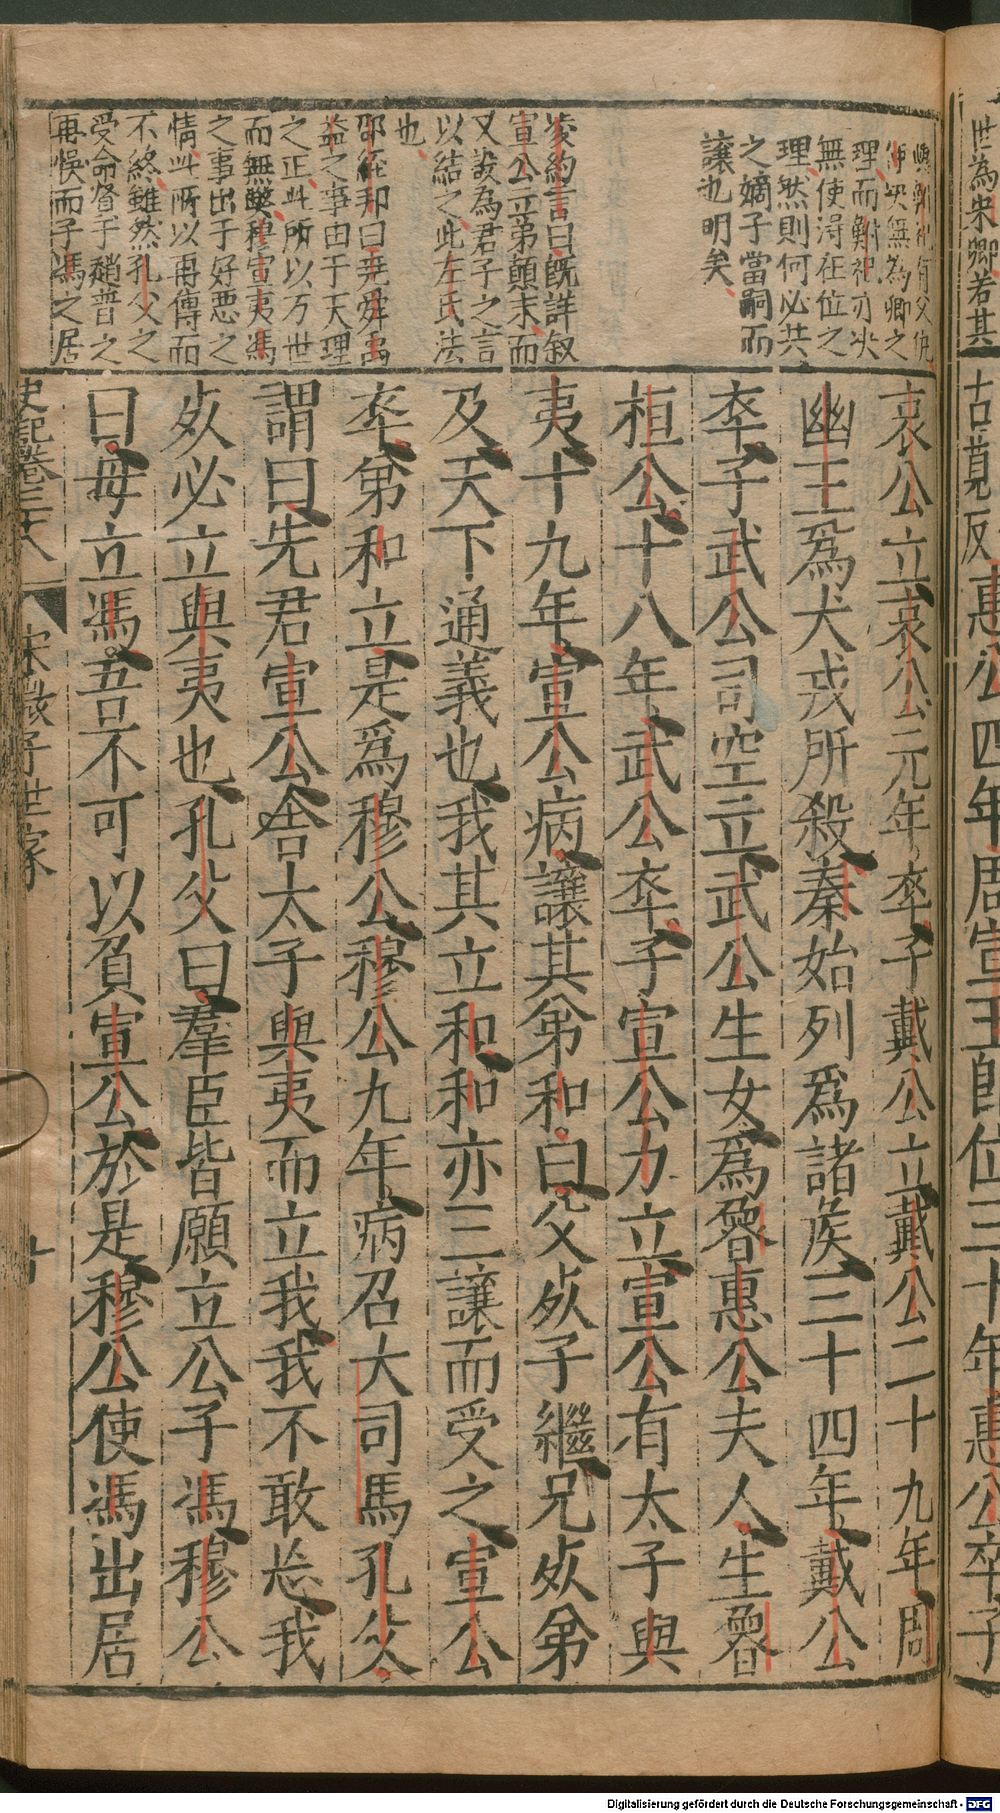 世為宋卿若其
古莧反惠公四年周宣王即位三十年惠公卒子
理而鮒祀亦必
無使得在位之
理然則何必共
之嫡子當嗣而
讓也明矣
凌約言曰既詳叙
宣公立弟顛末而
又設為君子之言
以結之此左氏法
也
邵經邦曰堯舜禹
益之事由于天理
之正此所以万世
而無獘穆宣夷馮
之事出于好惡之
情此所以再傳而
不終雖然孔父之
受命督于趙普之
再悞而子馮之居
哀公立哀公元年卒子戴公立戴公二十九年周
幽王爲犬戎所殺秦始列爲諸侯三十四年戴公
卒子武公司空立武公生女爲魯惠公夫人生魯
桓公十八年武公卒子宣公力立宣公有太子與
夷十九年宣公病讓其弟和曰父死子繼兄死弟
及天下通義也我其立和和亦三讓而受之宣公
卒弟和立是爲穆公穆公九年病召大司馬孔父
謂曰先君宣公舍太子與夷而立我我不敢忘我
死必立與夷也孔父曰羣臣皆願立公子馮穆公
曰毋立馮吾不可以負宣公於是穆公使馮出居
史記卷三十八
宋微子世家
Digitalisierung gefördert durch die Deutsche Forschungsgemeinschaft - DFG